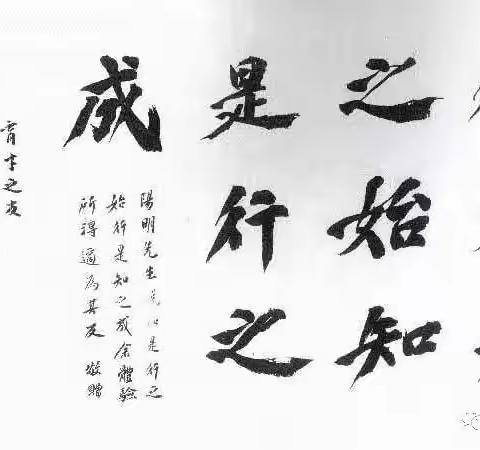 之始知
是行之
成
陽明先生是行之
始行是知之成余體驗
所得適為其反 敬贈
育才之友